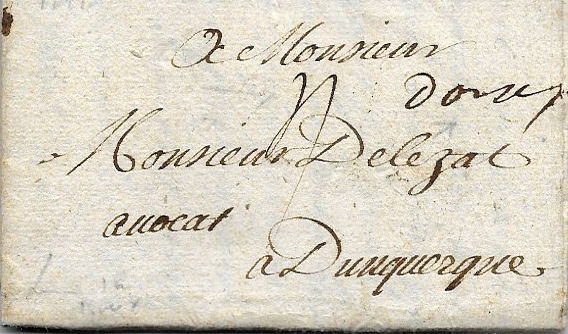 A Monsieur
Monsieur Delezat
avocat
à Dunquerque